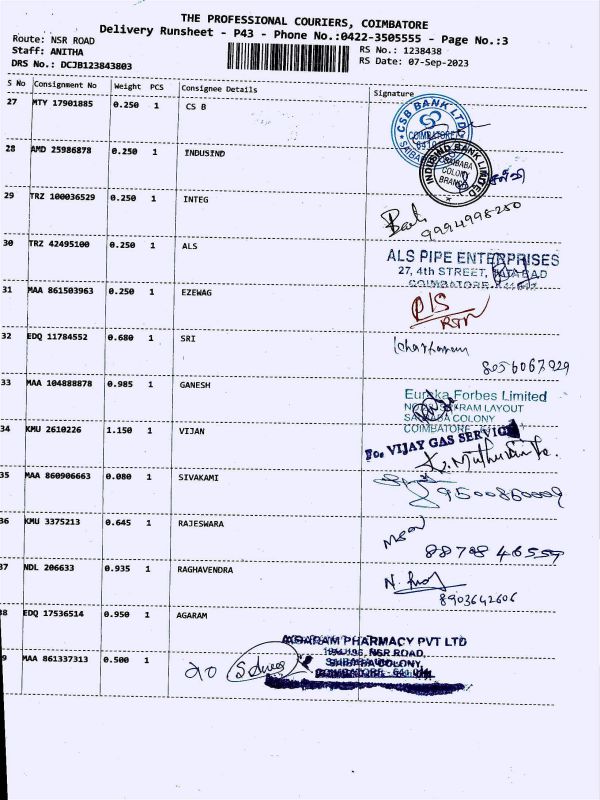 THE PROFESSIONAL COURIERS, COIMBATORE
Delivery Runsheet - P43 - Phone No.:0422-3505555 - Page No.:3
Route: NSR ROAD
Staff: ANITHA
DRS No.: DCJB123843803
RS No.: 1238438
RS Date: 07-Sep-2023
S No Consignment No Weight PCS Consignee Details Signature
27 MTY 17901885 0.250 1 CS B
CSB BANK LTD
COIMBATORE
28 AMD 25986878 0.250 1 INDUSIND
INDUSIND BANK LIMITED
SAIBABA
COLONY
BRANCH
29 TRZ 100036529 0.250 1 INTEG
9994998250
30 TRZ 42495100 0.250 1 ALS
ALS PIPE ENTERPRISES
27, 4th STREET,
COIMBATORE
31 MAA 861503963 0.250 1 EZEWAG
32 EDQ 11784552 0.680 1 SRI
8056067929
33 MAA 104888878 0.985 1 GANESH
Eureka Forbes Limited
LAYOUT
SAIBABA COLONY
COIMBATORE
34 KMU 2610226 1.150 1 VIJAN
For VIJAY GAS SERVICE
35 MAA 860906663 0.080 1 SIVAKAMI
9500860009
36 KMU 3375213 0.645 1 RAJESWARA
88708 46559
37 NDL 206633 0.935 1 RAGHAVENDRA
8903642606
38 EDQ 17536514 0.950 1 AGARAM
AGARAM PHARMACY PVT LTD
NSR ROAD,
SAIBABA COLONY,
COIMBATORE
39 MAA 861337313 0.500 1